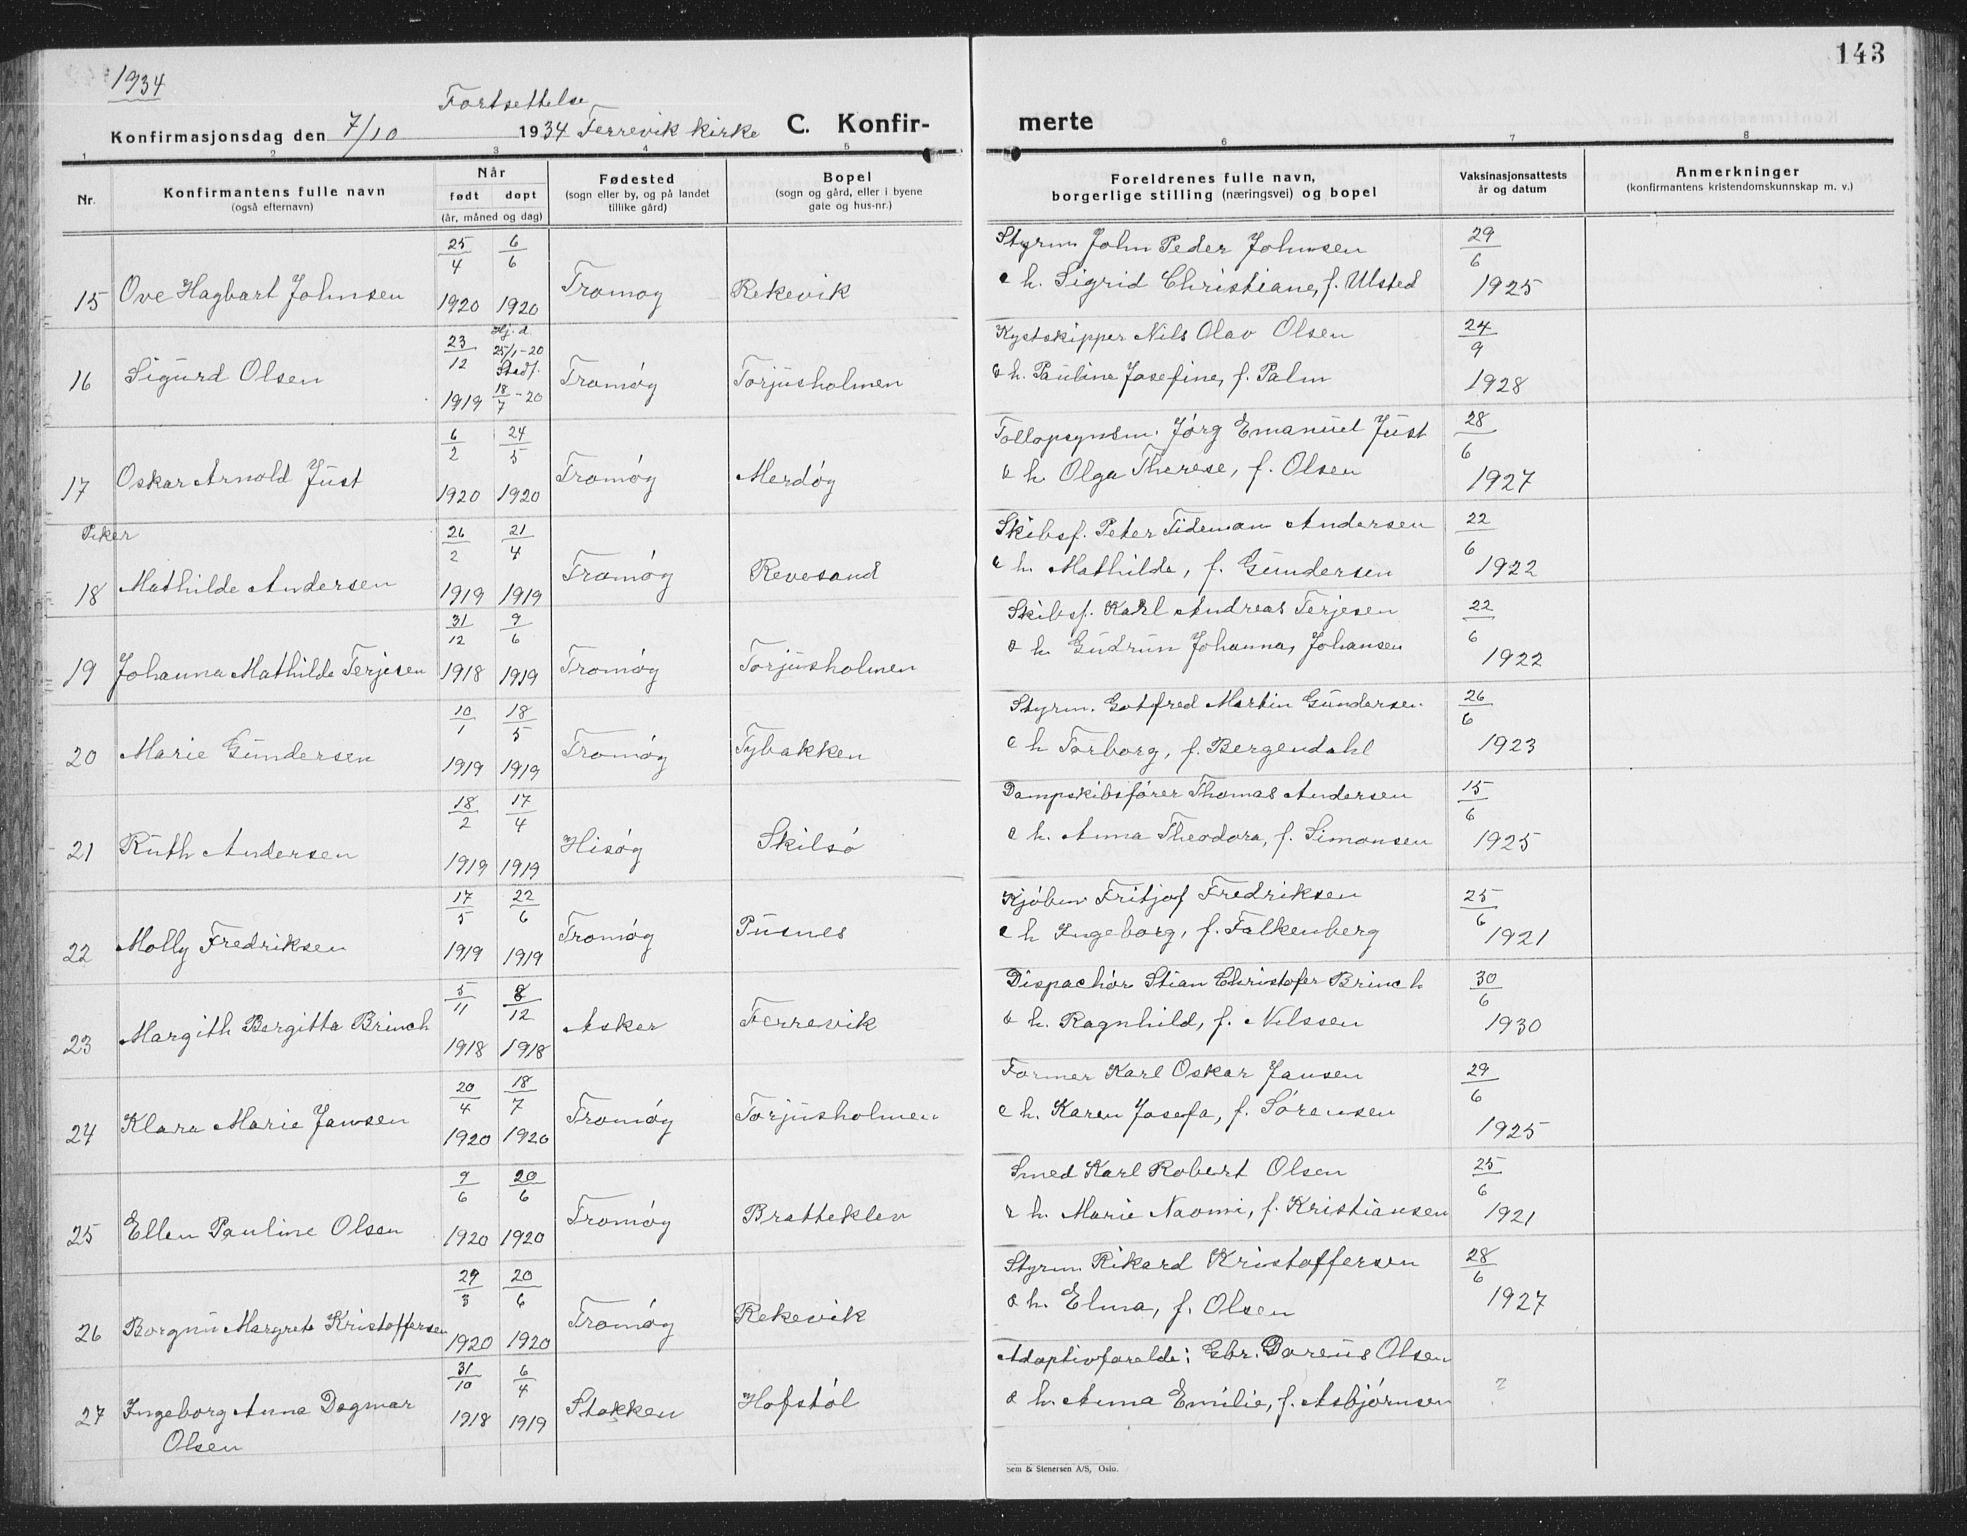 143
1934
Fortsettelse
Konfirmasjonsdag den 7/10 1934 Færevik kirke C. Konfir-merte
1 2 3 4 5 6 7 8
Nr. Konfirmantens fulle navn (også efternavn) Når født døpt (år, måned og dag) Fødested (sogn eller by, og på landet tillike gård) Bopel (sogn og gård, eller i byene gate og hus-nr.) Foreldrenes fulle navn, borgerlige stilling (næringsvei) og bopel Vaksinasjonsattests år og datum Anmerkninger (konfirmantens kristendomskunnskap m. v.)
15 Ove Hagbart Johnsen 25/4 1920 6/6 1920 Tromøy Rekevik Styrm. John Peder Johnsen 29/6 1925
o h. Sigrid Christiane, f. Ulsted
16 Sigurd Olsen 23/12 1919 Hj. d. 25/1-20 Stadf. 18/7-20 Tromøy Torjusholmen Kystskipper Nils Olav Olsen 24/9 1928
o h. Pauline Josefine, f. Palm
17 Oskar Arnold Just 6/2 1920 24/5 1920 Tromøy Merdøy Tollopsynsm. Jørg Emanuel Just 28/6 1927
o h. Olga Therese, f. Olsen
Piker
18 Mathilde Andersen 26/2 1919 21/4 1919 Tromøy Revesand Skibsf. Peter Tideman Andersen 22/6 1922
o h. Mathilde, f. Gundersen
19 Johanna Mathilde Terjesen 31/12 1918 9/6 1919 Tromøy Torjusholmen Skibsf. Karl Andreas Terjesen 22/6 1922
o h. Gudrun Johanna, Johansen
20 Marie Gundersen 10/1 1919 18/5 1919 Tromøy Tybakken Styrm. Gotfred Martin Gundersen 26/6 1923
o h Torborg, f. Bergendahl
21 Ruth Andersen 18/2 1919 17/4 1919 Hisøy Skilsø Dampskibsfører Thomas Andersen 15/6 1925
o h. Anna Theodora, f. Simonsen
22 Molly Fredriksen 17/5 1919 22/6 1919 Tromøy Pusnes Kjøbm Fritjof Fredriksen 25/6 1921
o h Ingeborg, f. Falkenberg
23 Margith Bergitta Brinch 5/11 1918 8/12 1918 Asker Færevik Dispachør Stian Christofer Brinch 30/6 1930
o h. Ragnhild, f. Nilssen
24 Klara Marie Jansen 20/4 1920 18/7 1920 Tromøy Torjusholmen Former Karl Oskar Jansen 29/6 1925
o h. Karen Josefa, f. Sørensen
25 Ellen Pauline Olsen 9/6 1920 20/6 1920 Tromøy Bratteklev Smed Karl Robert Olsen 25/6 1921
o h. Marie Naomi, f. Kristiansen
26 Borgny Margrete Kristoffersen 29/3 1920 20/6 1920 Tromøy Rekevik Styrm Rikard Kristoffersen 28/6 1927
o h. Elma, f. Olsen
27 Ingeborg Anna Dagmar Olsen 31/10 1918 6/4 1919 Stokken Hofstøl Adoptivforelde: Ebr. Dareus Olsen ?
o h. Anna Emilie, f. Asbjørnsen
Sem & Stenersen A/S, Oslo.